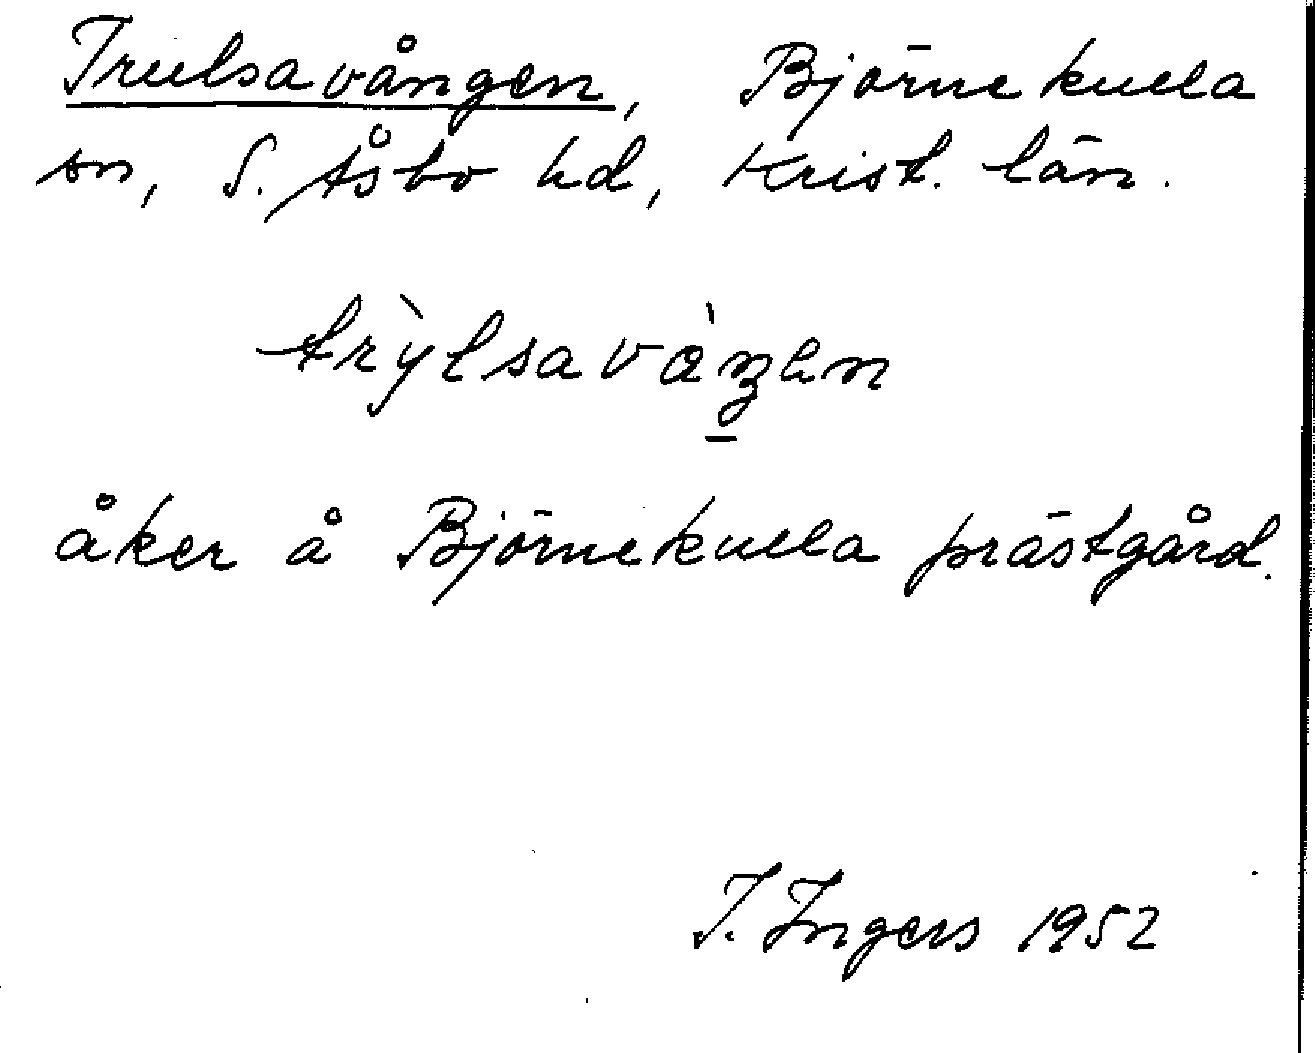 Trulsavången, Björnekulla
sn, S. Åsbo hd, Krist. län.
trỳlsavàŋen
åker å Björnekulla prästgård.
I. Ingers 1952